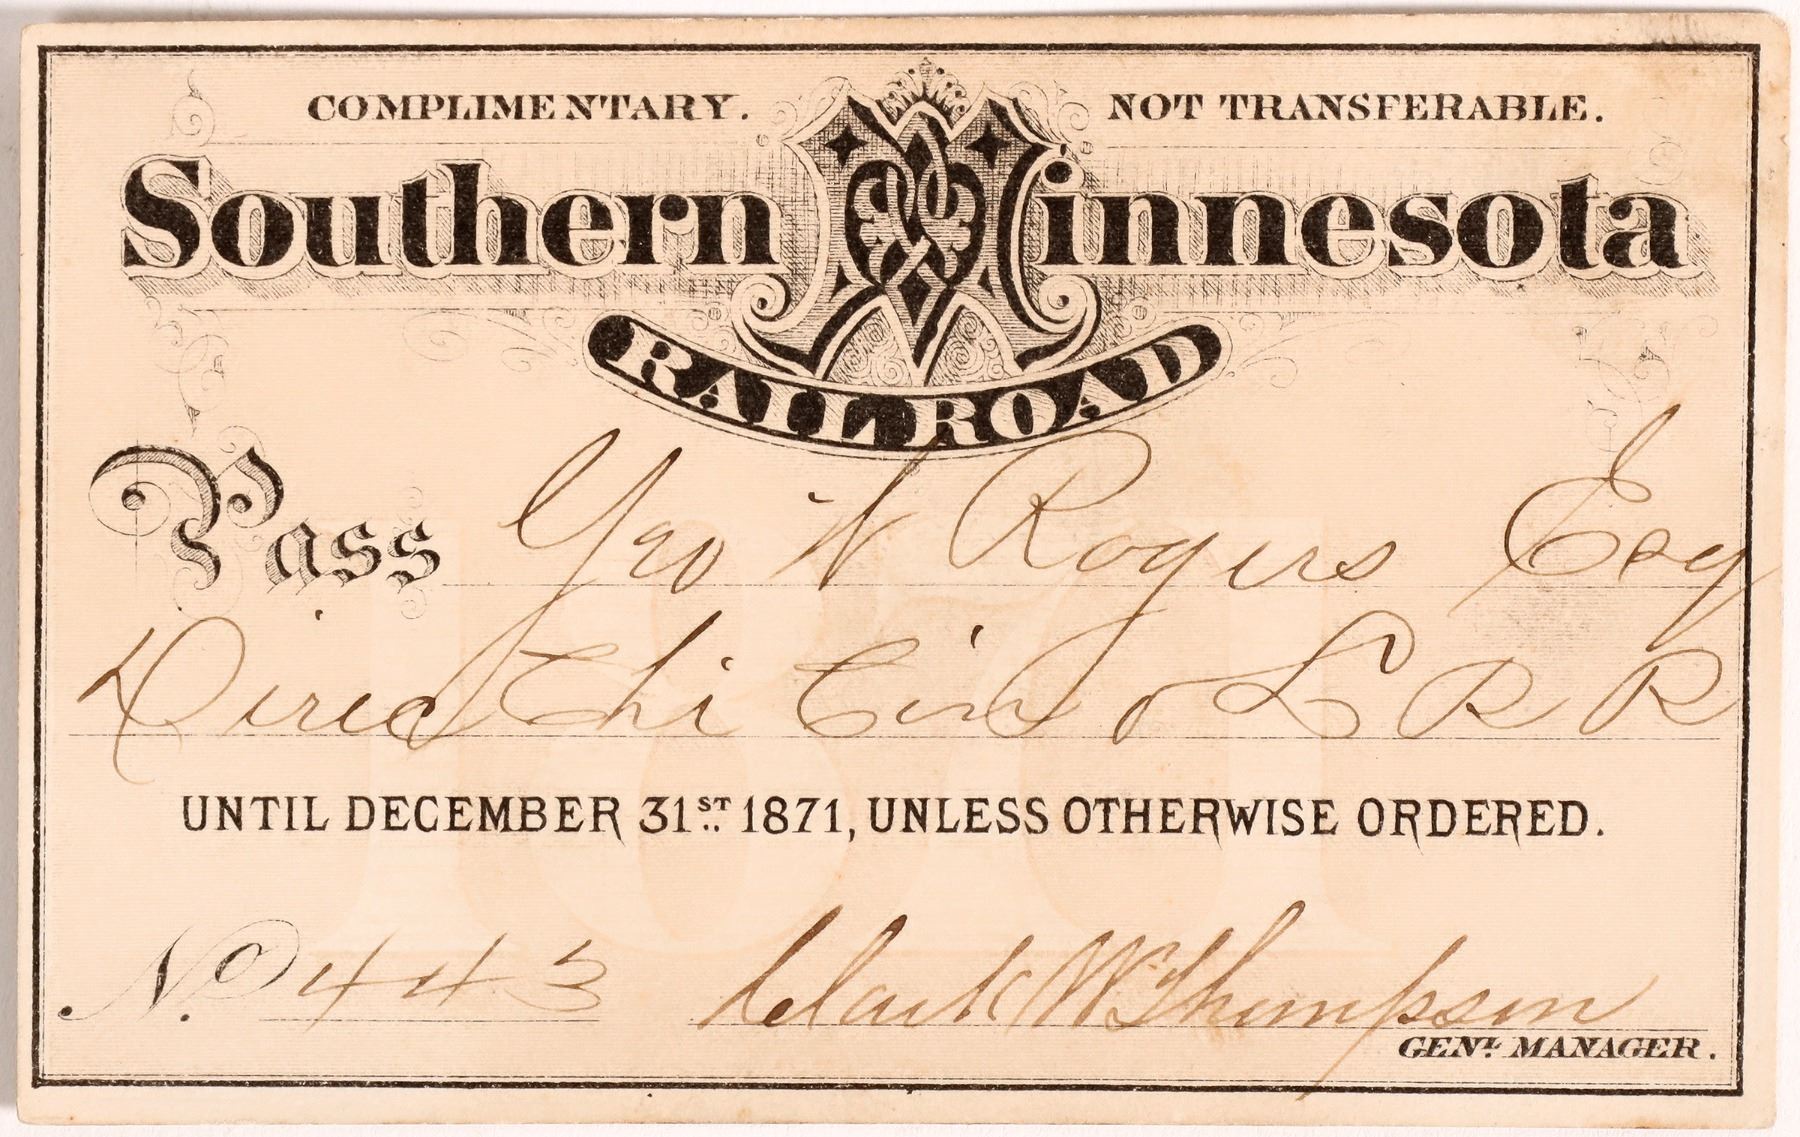 COMPLIMENTARY. NOT TRANSFERABLE.
Southern Minnesota
RAILROAD
Pass Geo W Rogers Esq
Direc Chi Cin & L R R
UNTIL DECEMBER 31ST 1871, UNLESS OTHERWISE ORDERED.
No. 443 Clark W. Thompson
GENL MANAGER.
1871